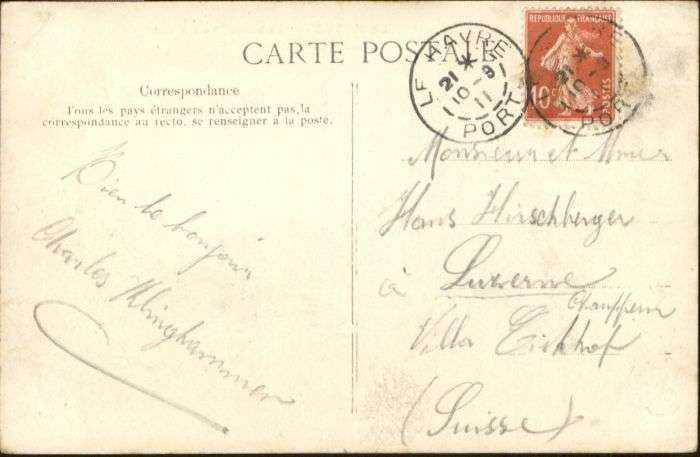 CARTE POSTALE
Correspondance
Tous les pays étrangers n'acceptent pas la
correspondance au recto, se renseigner à la poste.
Bien le bonjour
Charles Klinghammer
REPUBLIQUE FRANÇAISE
10c
POSTES
LE HAVRE
21 * 9
10-
11
PORT
21 *
10-
PORT
Monsieur et
Hans Hirschberger
à Luzerne
Villa Eichhof
(Suisse)